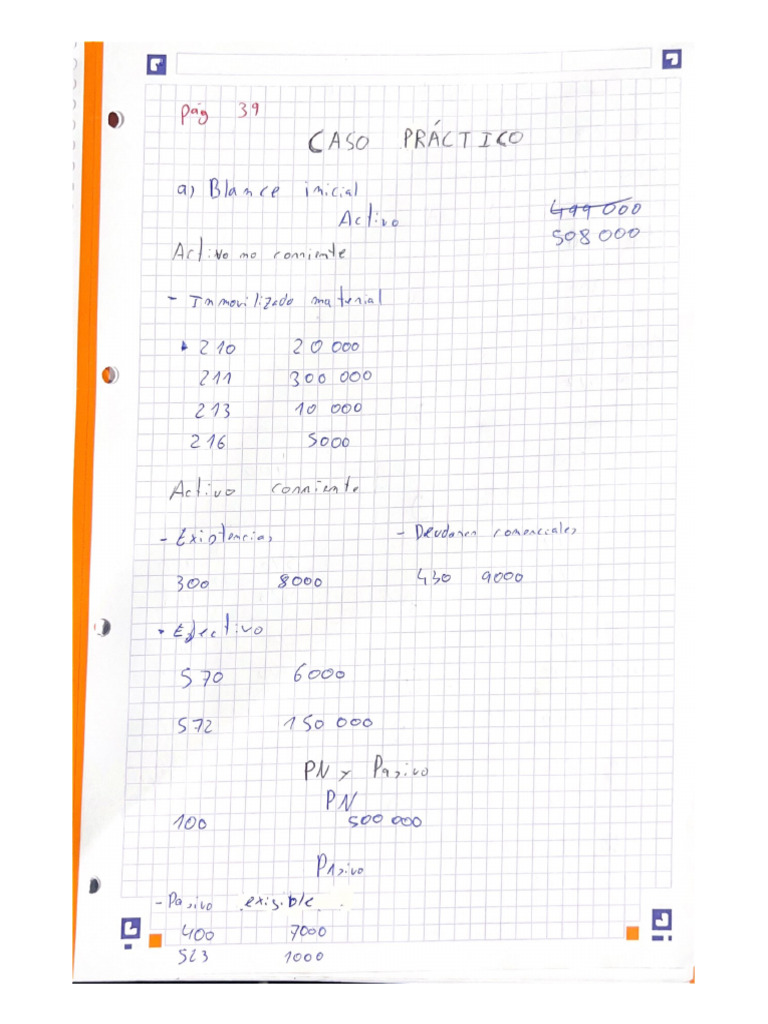 pág 39
CASO PRÁCTICO
a) Blance inicial
Activo
499 000
508 000
Activo no corriente
- Inmovilizado material
210 20 000
211 300 000
213 10 000
216 5000
Activo corriente
- Existencias
- Deudores comerciales
300 8000
430 9000
- Efectivo
570 6000
572 150 000
PN y Pasivo
PN
100 500 000
Pasivo
- Pasivo exigible
400 7000
523 1000